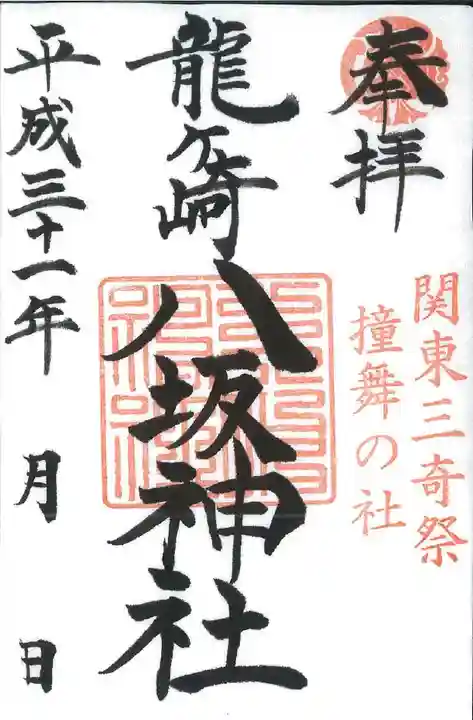 奉拝
関東三奇祭
撞舞の社
龍ヶ崎八坂神社
平成三十一年 月 日